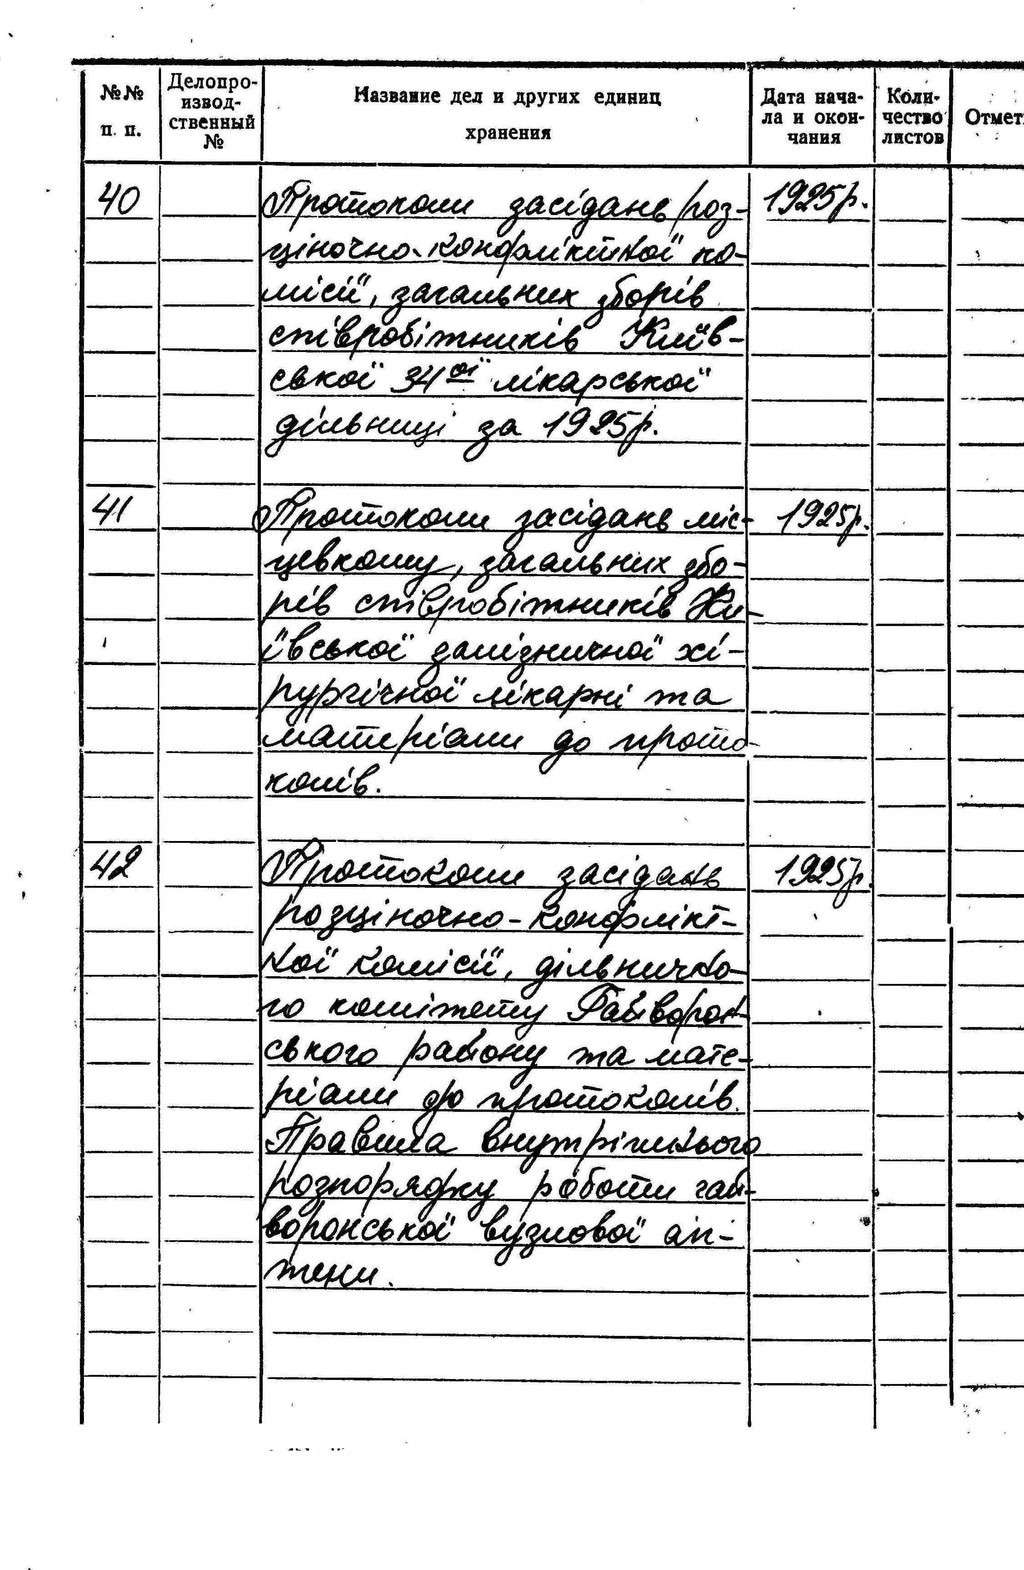 №№ п. п. Делопро-извод-ственный № Название дел и других единиц хранения Дата нача-ла и окон-чания Коли-чество листов Отмет
40 Протоколи засідань роз- 1925р.
ціночно-конфліктної ко-
місії, загальних зборів
співробітників Київ-
ської 34ої лікарської
дільниці за 1925р.
41 Протоколи засідань міс- 1925р.
цевкому, загальних збо-
рів співробітників Ки-
ївської залізничної хі-
рургічної лікарні та
матеріали до прото-
колів.
42 Протоколи засідань 1925р.
розціночно-конфлікт-
ної комісії, дільнично-
го комітету Гайворон-
ського району та мате-
ріали до протоколів.
Правила внутрішнього
розпорядку роботи гай-
воронської вузлової ап-
теки.